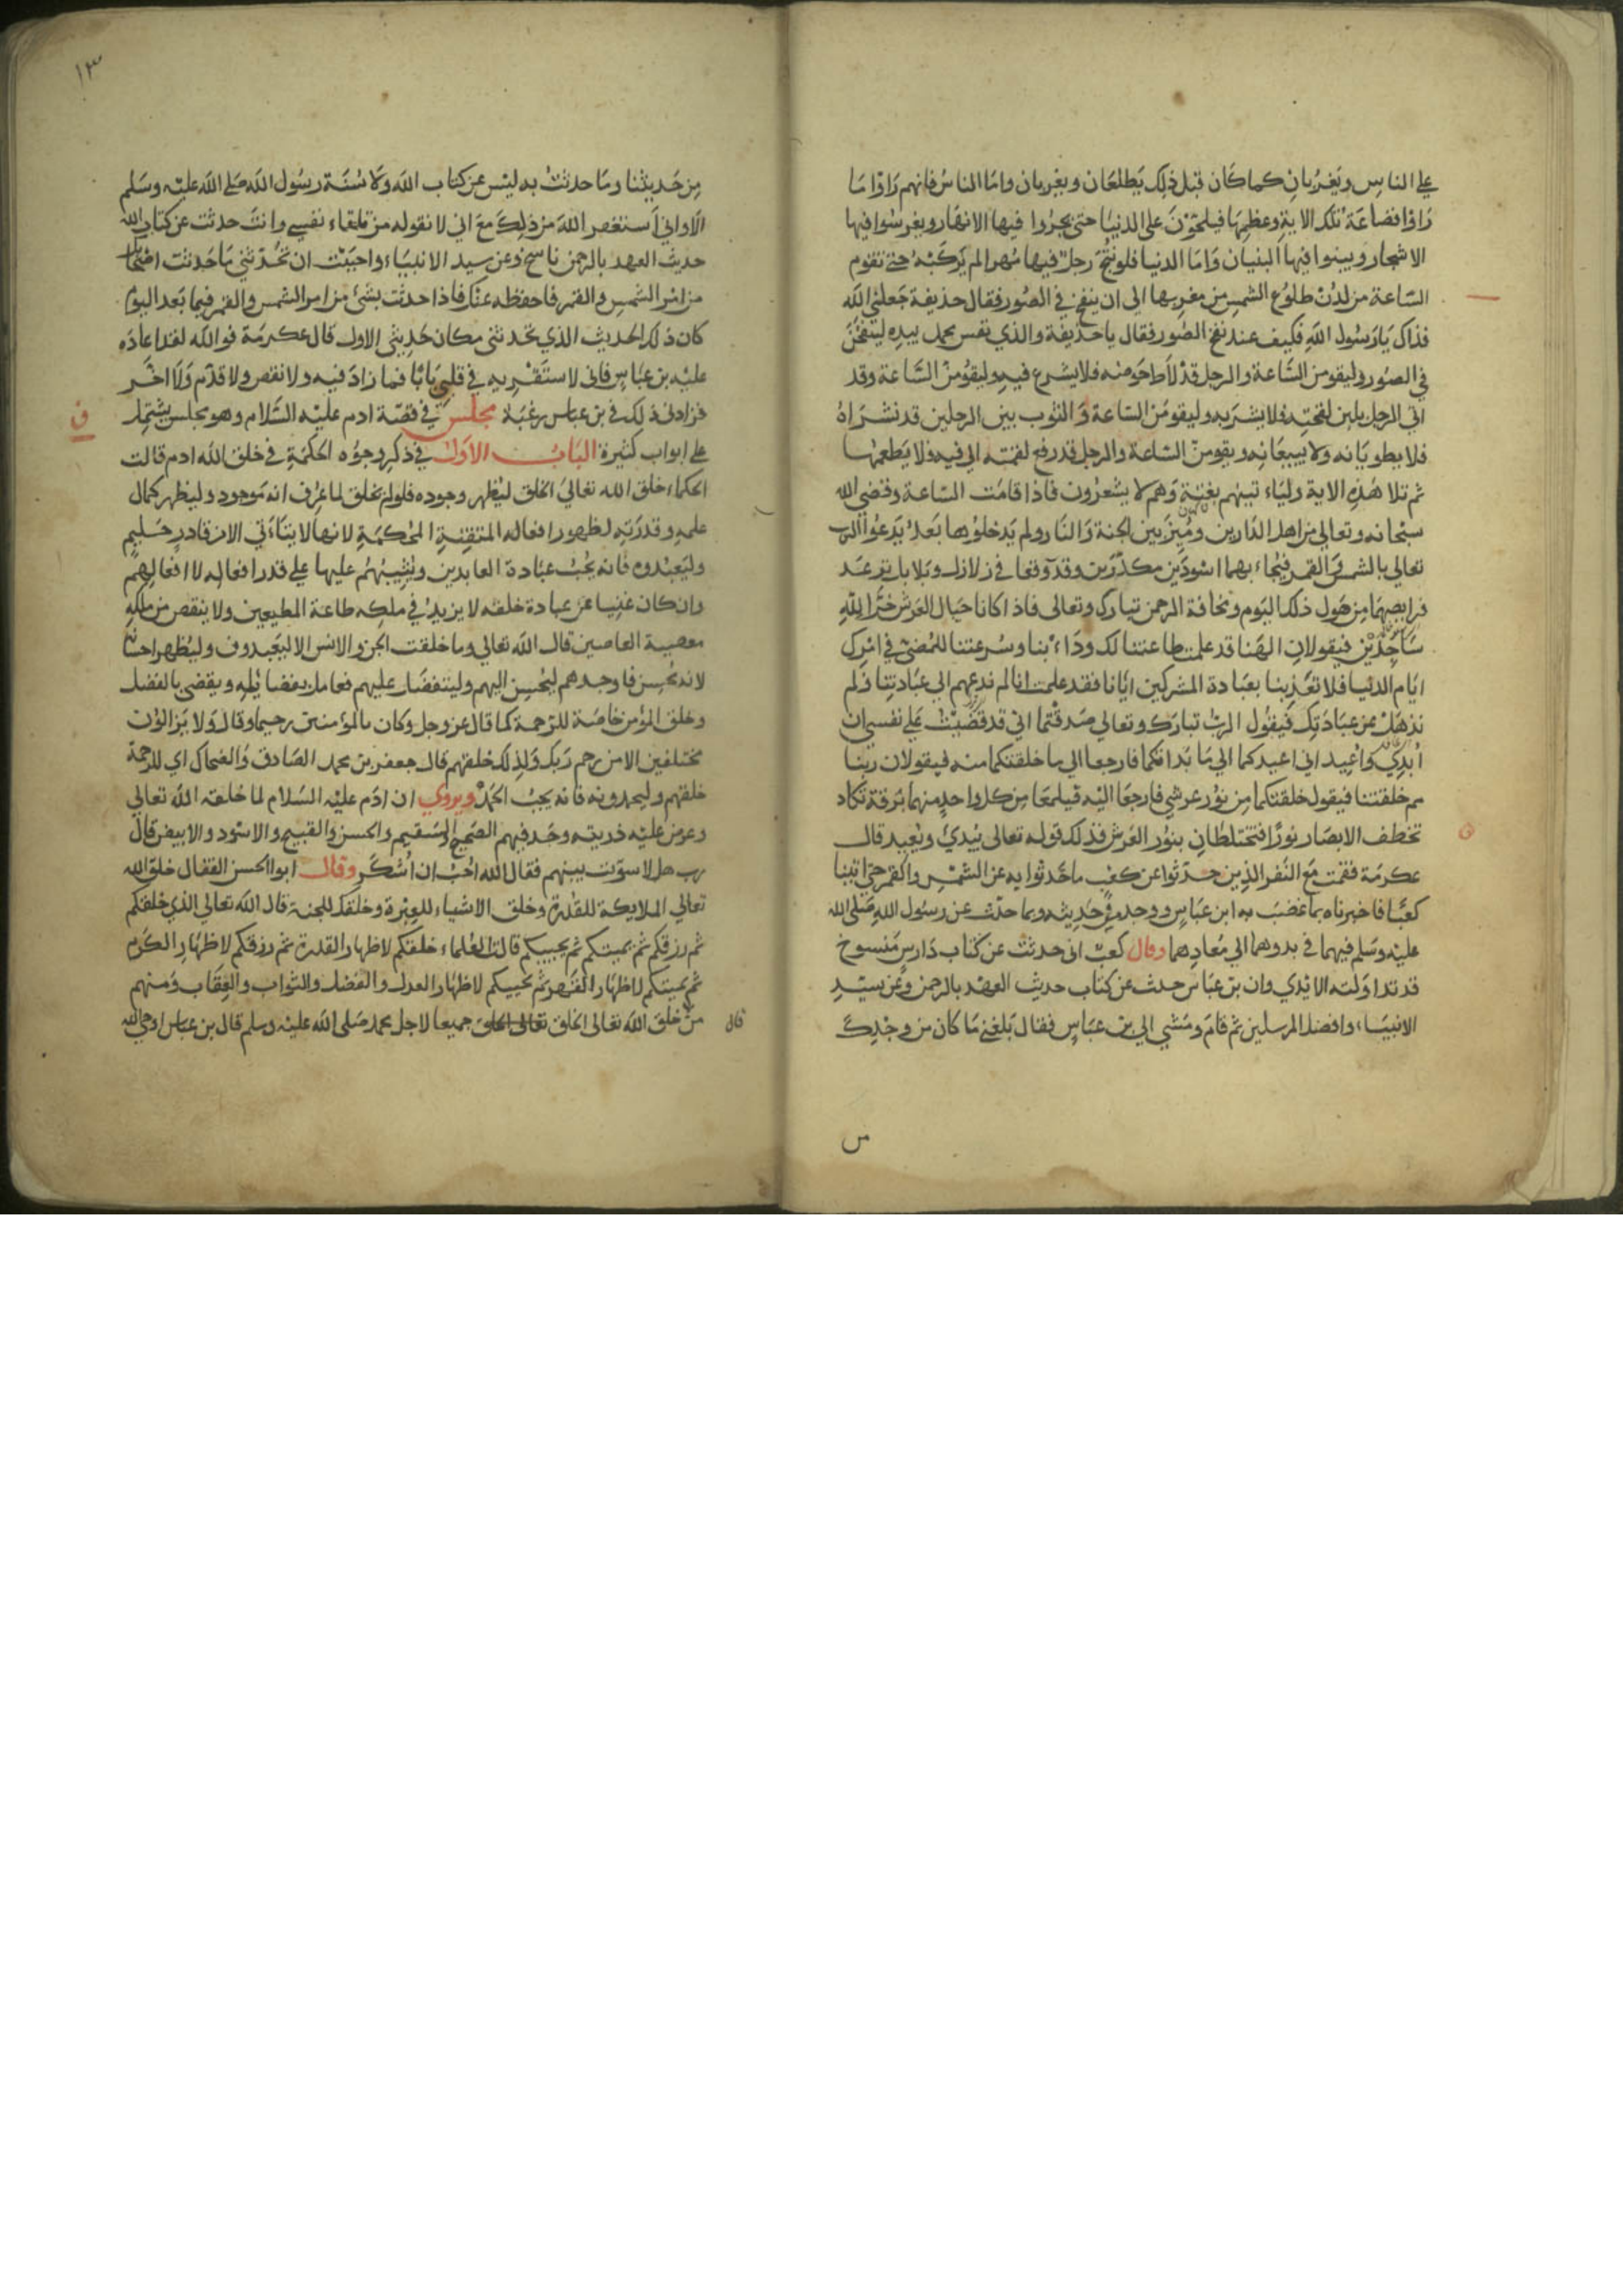 علي الناس ويغربان كما كان قبل ذلك يطلعان ويغربان واما الناس فانهم راوا ما
راوا فضاعة تلك الاية وعظمها فيلحون على الدنيا حتى يجروا فيها الانهار ويغرسوا فيها
الاشجار ويبنوا فيها البنيان واما الدنيا فلو نتج رجل فيها مهرا لم يركبه حتى تقوم
الساعة من لدن طلوع الشمس من مغربها الى ان ينفخ في الصور فقال حذيفة جعلني الله
فداك يا رسول الله فكيف عند نفخ الصور فقال يا حذيفة والذي نفس محمد بيده لينفخن
في الصور وليقومن الساعة والرجل قد لاط حوضه فلا يشرع فيه وليقومن الساعة وقد
اتي الرجل بلبن لقحته فلا يشربه وليقومن الساعة والثوب بين الرجلين قد نشراه
فلا يطويانه ولا يبيعانه ويقومن الساعة والرجل قد رفع لقمته الى فيه فلا يطعمها
ثم تلا هذه الاية ولياتينهم بغتة وهم لا يشعرون فاذا قامت الساعة وقضي الله
سبحانه وتعالى من اهل الدارين وميز بين الجنة والنار ولم يدخلوها بعد يدعوا الرب
تعالي بالشمس والقمر فيجاء بهما اسودين مكدرين وقد وقعا في زلازل وبلابل ترعد
فرايصهما من هول ذلك اليوم ومخافة الرحمن تبارك وتعالى فاذا كانا حيال العرش خرا لله
ساجدين فيقولان الهنا قد علمت طاعتنا لك ودابنا وسرعتنا للمضي في امرك
ايام الدنيا فلا تعذبنا بعبادة المشركين ايانا فقد علمت انا لم ندعهم الي عبادتنا ولم
نذهل عن عبادتك فيقول الرب تبارك وتعالي صدقتما اني قد قضيت علي نفسي ان
ابدي واعيد اني اعيدكما الي ما بداتكما فارجعا الي ما خلقتكما منه فيقولان ربنا
مم خلقتنا فيقول خلقتكما من نور عرشي فارجعا اليه فيلمعا من كل واحد منهما برقة تكاد
تخطف الابصار نورا فتختلطان بنور العرش فذلك قوله تعالى يبدئ ويعيد قال
عكرمة فقمت مع النفر الذين حدثوا عن كعب ما حدثوا به عن الشمس والقمر حتى اتينا
كعبا فاخبرناه بما غضب به ابن عباس ووجده في حديثه وبما حدث عن رسول الله صلى الله
عليه وسلم فيهما في بدوهما الي معادهما وقال كعب انى حدثت عن كتاب دارس منسوخ
قد تداولته الايدي وان بن عباس حدث عن كتاب حديث العهد بالرحمن وعن سيد
الانبياء وافضل المرسلين ثم قام ومشي الي بن عباس فقال بلغني ما كان من وجدك
س
١٣
من حديثنا وما حدثت به ليس عن كتاب الله ولا سنة رسول الله صلى الله عليه وسلم
الا واني استغفر الله من ذلك مع اني لا نقوله من تلقاء نفسي وانت حدثت عن كتاب الله
حديث العهد بالرحمن ناسخ وعن سيد الانبياء واحببت ان تحدثني ما حدثت اصحابك
من امر الشمس والقمر فاحفظه عنك فاذا حدثت بشئ من امر الشمس والقمر فيما بعد اليوم
كان ذلك الحديث الذي تحدثني مكان حديثي الاول قال عكرمة فوالله لقد اعاده
عليه بن عباس فاني لاستقريه في قلبي بابا بابا فما زاد فيه ولا نقص ولا قدم ولا اخر
فزادنى ذلك في بن عباس رغبة مجلس في قصة ادم عليه السلام وهو مجلس يشتمل
ف
علي ابواب كثيرة الباب الاول في ذكر وجوه الحكمة في خلق الله ادم قالت
الحكماء خلق الله تعالي الخلق ليظهر وجوده فلو لم يخلق لما عرف انه موجود وليظهر كمال
علمه وقدرته لظهور افعاله المتقنة المحكمة لانها لا يتاتي الا من قادر حليم
وليعبدوه فانه يحب عبادة العابدين ويثيبهم عليها علي قدر افعاله لا افعالهم
وان كان غنيا عن عبادة خلقه لا يزيد في ملكه طاعة المطيعين ولا ينقص من ملكه
معصية العاصين قال الله تعالي وما خلقت الجن والانس الا ليعبدون وليظهر احسانه
لانه محسن فاوجدهم ليحسن اليهم وليتفضل عليهم فعامل بعضا بعدله وبعضي بالفضل
وخلق المؤمن خاصة للرحمة كما قال عز وجل وكان بالمؤمنين رحيما وقال ولا يزالون
مختلفين الا من رحم ربك ولذلك خلقهم قال جعفر بن محمد الصادق والضحاك اي للرحمة
خلقهم وليحمدونه فانه يحب الحمد ويروي ان ادم عليه السلام لما خلقه الله تعالي
وعرض عليه ذريته وجد فيهم الصحيح والسقيم والحسن والقبيح والاسود والابيض قال
رب هلا سويت بينهم فقال الله احب ان اشكر وقال ابو الحسن القفال خلق الله
تعالي الملايكة للقدرة وخلق الاشياء للعبرة وخلقك للجنة قال الله تعالي الذي خلقكم
ثم رزقكم ثم يميتكم ثم يحييكم قالت العلماء خلقكم لاظهار القدرة ثم رزقكم لاظهار الكرم
ثم يميتكم لاظهار القهر ثم يحييكم لاظهار العدل والفضل والثواب والعقاب ومنهم
من قال خلق الله تعالى الخلق جميعا لاجل محمد صلى الله عليه وسلم قال بن عباس اوحي الله